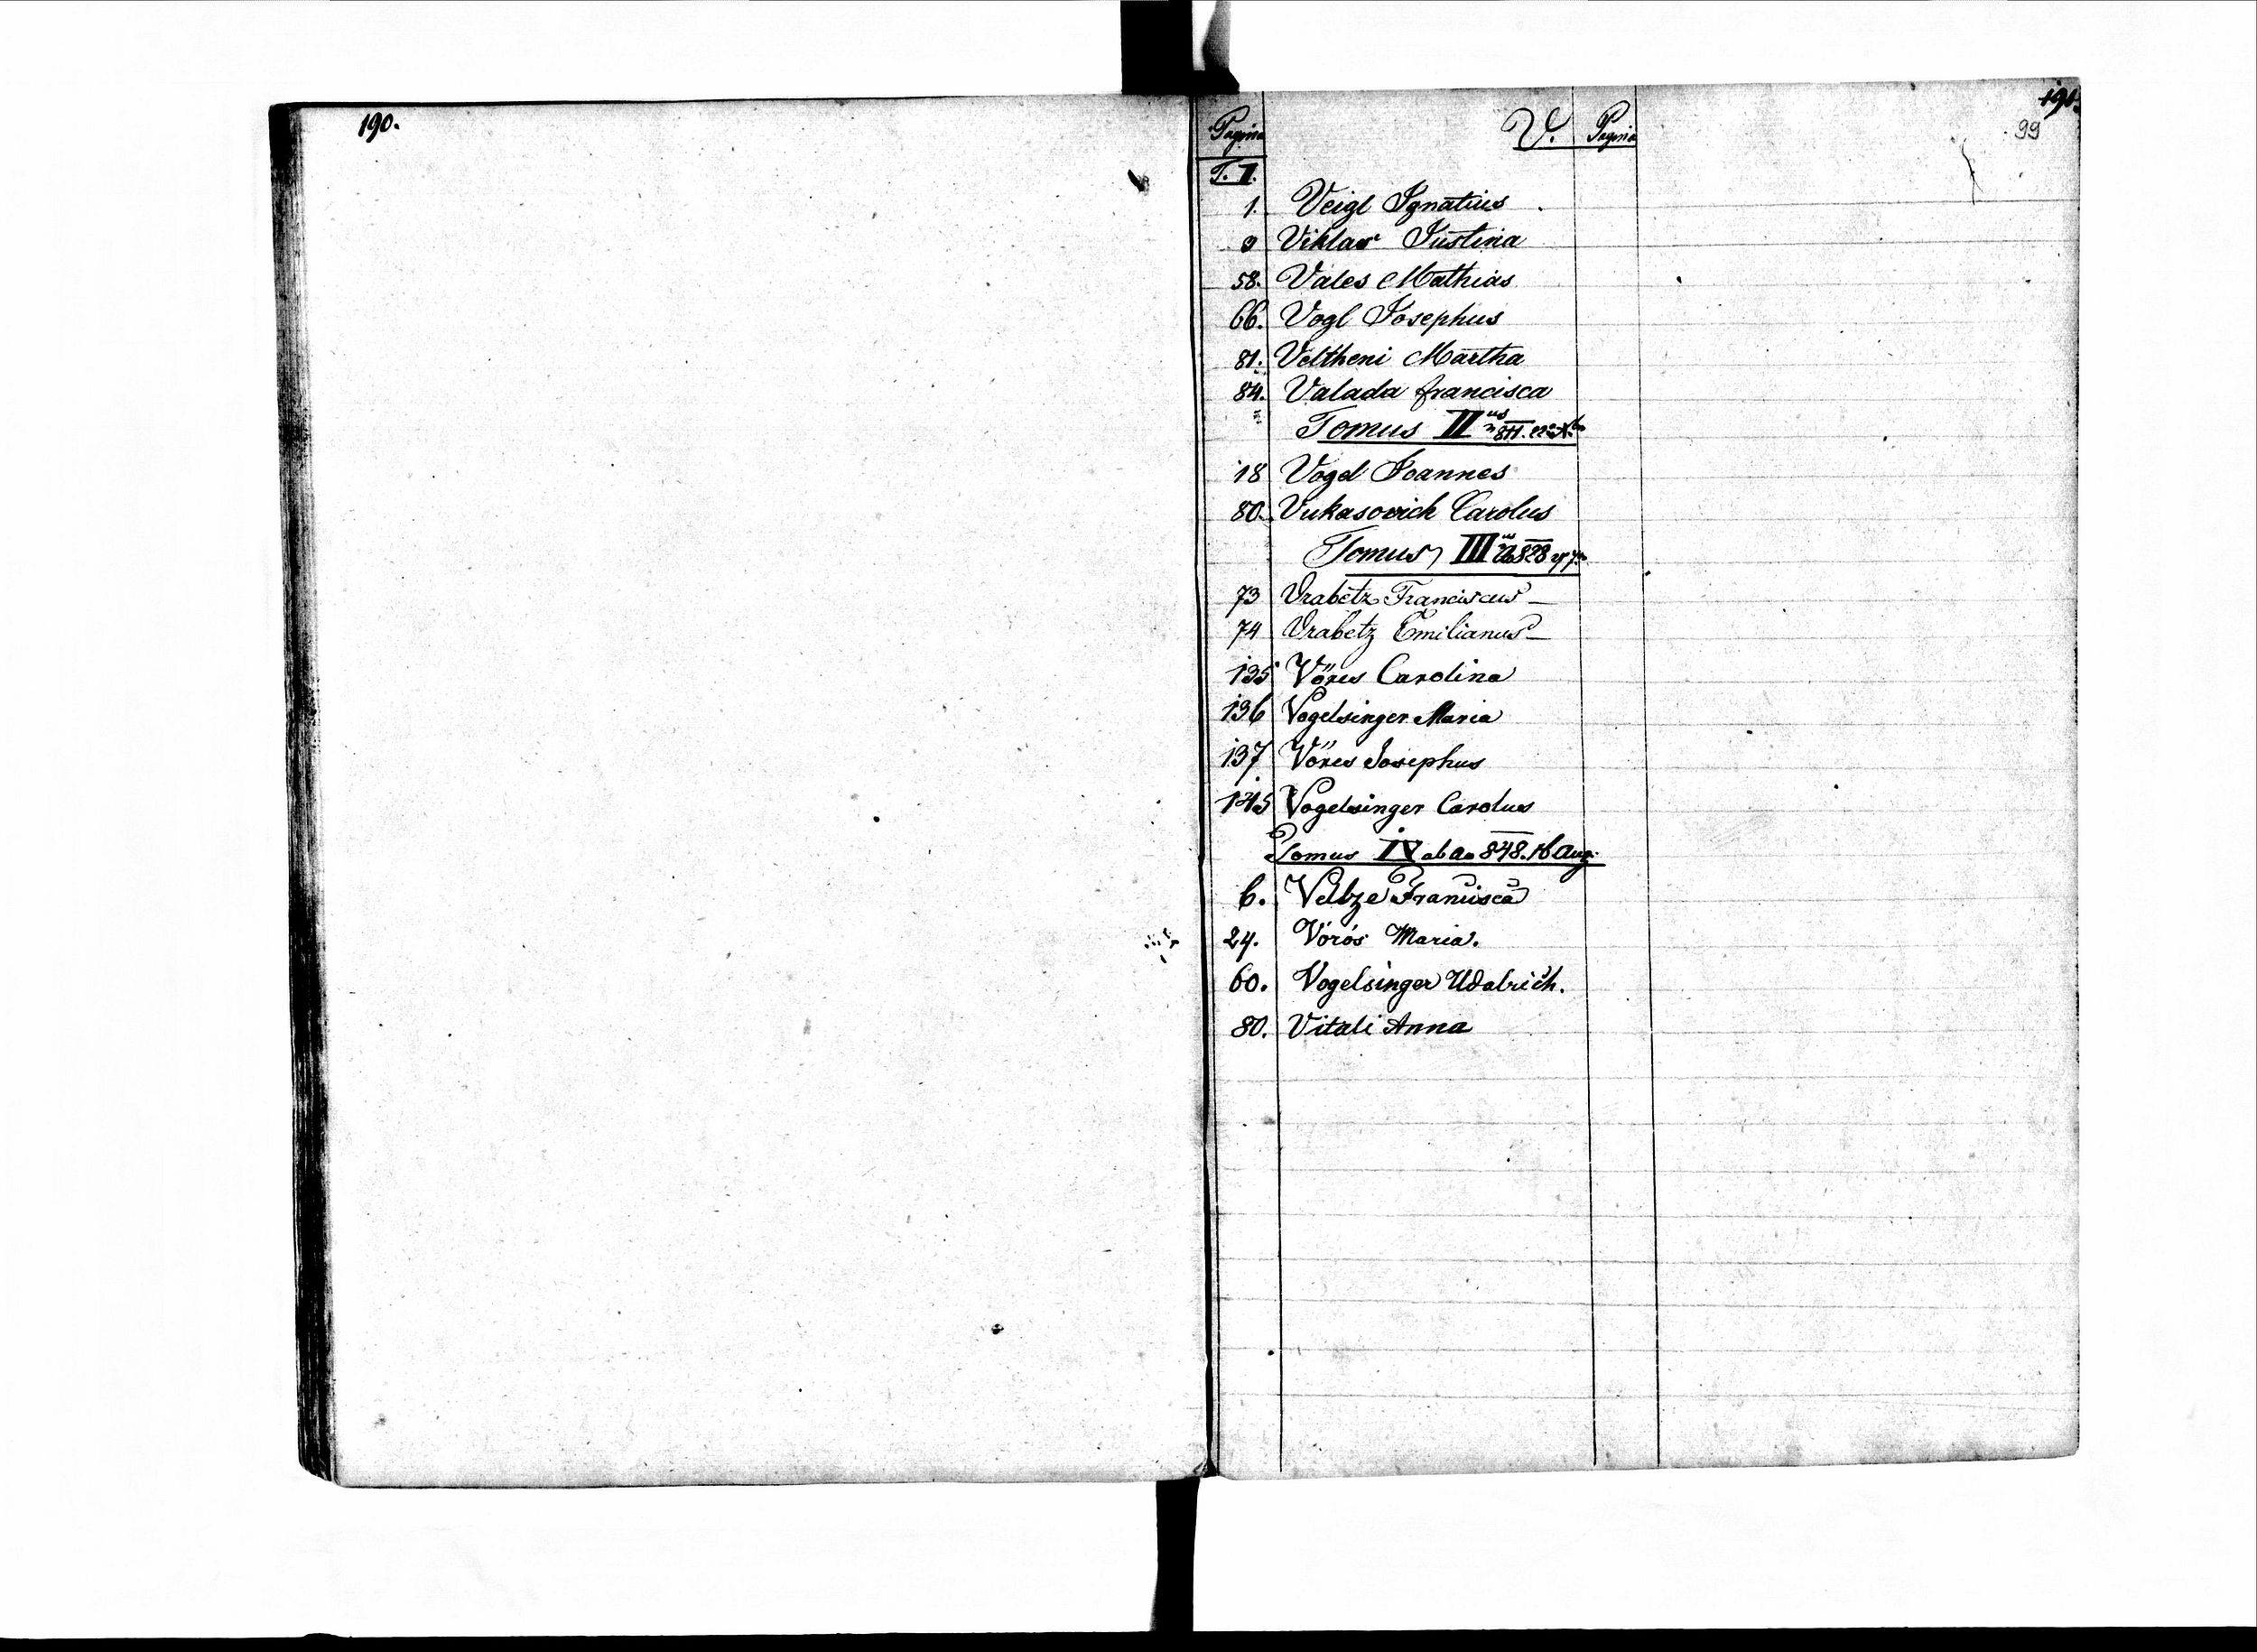 190.
191.
99
Pagina V. Pagina
T. I.
1. Veigl Ignatius
9 Viklar Justina
58. Vales Mathias
66. Vogl Josephus
81. Veltheni Martha
84. Valada Francisca
Tomus II us
18 Vogel Joannes
80. Vukasovich Carolus
Tomus III us 828
73 Vrabetz Franciscus
74 Vrabetz Emilianus
135 Vörös Carolina
136 Vogelsinger Maria
137 Vörös Josephus
145 Vogelsinger Carolus
Tomus IV ab Ao 848. 16 Aug.
6. Velbze Francisca
24. Vörös Maria.
60. Vogelsinger Udalrich.
80. Vitali Anna